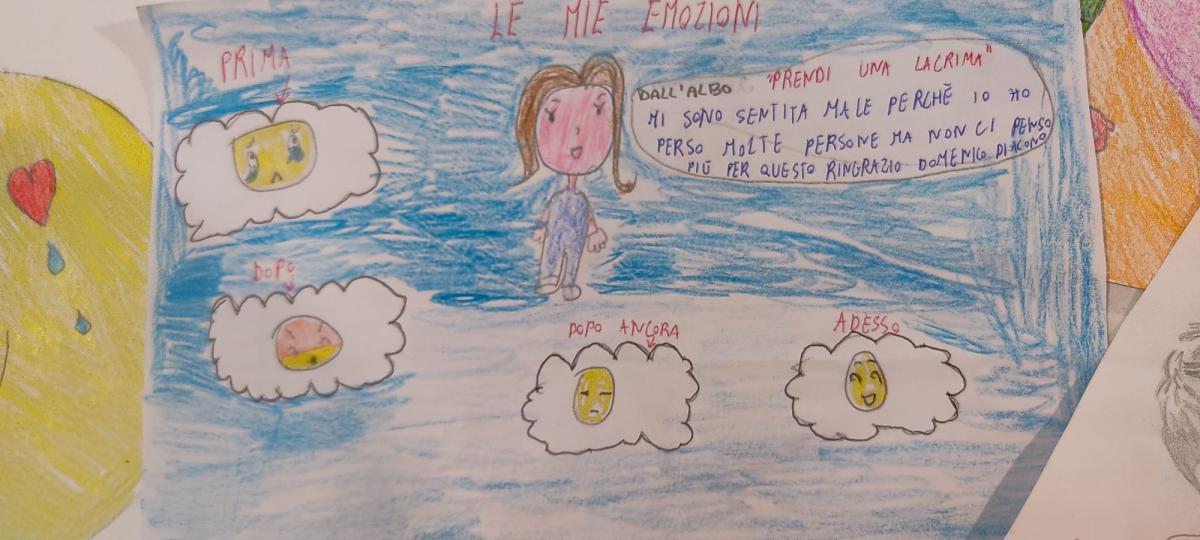 LE MIE EMOZIONI
PRIMA
DALL'ALBO "PRENDI UNA LACRIMA"
MI SONO SENTITA MALE PERCHÈ IO HO
PERSO MOLTE PERSONE MA NON CI PENSO
PIÙ PER QUESTO RINGRAZIO DOMENICO DIACONO
DOPO
DOPO ANCORA
ADESSO